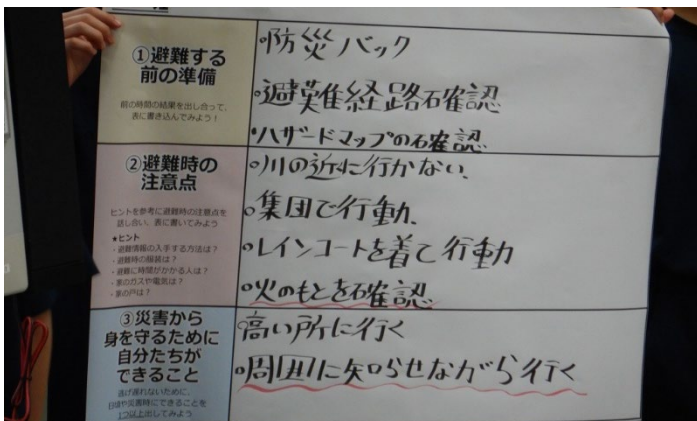 ①避難する
前の準備
前の時間の結果を出し合って、
表に書き込んでみよう!
・防災バック
・避難経路確認
・ハザードマップの確認
②避難時の
注意点
ヒントを参考に避難時の注意点を
話し合い、表に書いてみよう
★ヒント
・避難情報の入手する方法は?
・避難時の服装は?
・避難に時間がかかる人は?
・家のガスや電気は?
・家の戸は?
・川の近に行かない、
・集団で行動、
・レインコートを着て行動
・火のもとを確認
③災害から
身を守るために
自分たちが
できること
逃げ遅れないために、
日頃や災害時にできることを
1つ以上出してみよう
高い所に行く
・周囲に知らせながら行く